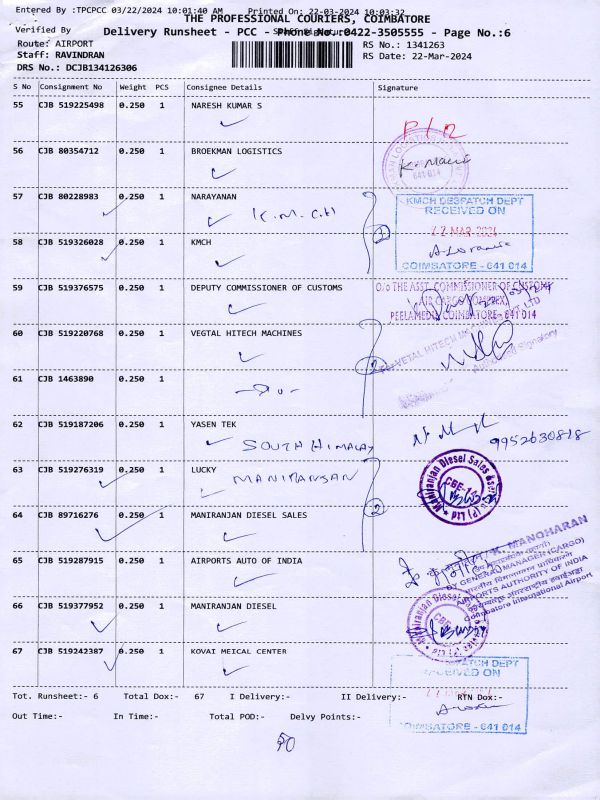 Entered By :TPCPCC 03/22/2024 10:01:40 AM Printed On: 22-03-2024 10:03:32
THE PROFESSIONAL COURIERS, COIMBATORE
Verified By
Delivery Runsheet - PCC - Phone No.:0422-3505555 - Page No.:6
Route: AIRPORT
RS No.: 1341263
Staff: RAVINDRAN
RS Date: 22-Mar-2024
DRS No.: DCJB134126306
S No Consignment No Weight PCS Consignee Details Signature
55 CJB 519225498 0.250 1 NARESH KUMAR S
56 CJB 80354712 0.250 1 BROEKMAN LOGISTICS
57 CJB 80228983 0.250 1 NARAYANAN
K.M.C.H
KMCH DESPATCH DEPT
RECEIVED ON
22 MAR 2024
COIMBATORE - 641 014
58 CJB 519326028 0.250 1 KMCH
59 CJB 519376575 0.250 1 DEPUTY COMMISSIONER OF CUSTOMS
O/o THE ASST. COMMISSIONER OF CUSTOMS
AIR CARGO COMPLEX,
PEELAMEDU, COIMBATORE - 641 014
60 CJB 519220768 0.250 1 VEGTAL HITECH MACHINES
Authorised Signatory
61 CJB 1463890 0.250 1
62 CJB 519187206 0.250 1 YASEN TEK
SOUTH HIMALAY
9952630818
63 CJB 519276319 0.250 1 LUCKY
MANIRANSAN
Maniranjan Diesel Sales &
(P) Ltd
CBE-14
64 CJB 89716276 0.250 1 MANIRANJAN DIESEL SALES
65 CJB 519287915 0.250 1 AIRPORTS AUTO OF INDIA
K. MANOHARAN
GENERAL MANAGER (CARGO)
AIRPORTS AUTHORITY OF INDIA
Coimbatore International Airport
66 CJB 519377952 0.250 1 MANIRANJAN DIESEL
67 CJB 519242387 0.250 1 KOVAI MEICAL CENTER
DESPATCH DEPT
RECEIVED ON
COIMBATORE - 641 014
Tot. Runsheet:- 6 Total Dox:- 67 I Delivery:- II Delivery:- RTN Dox:-
Out Time:- In Time:- Total POD:- Delvy Points:-
50